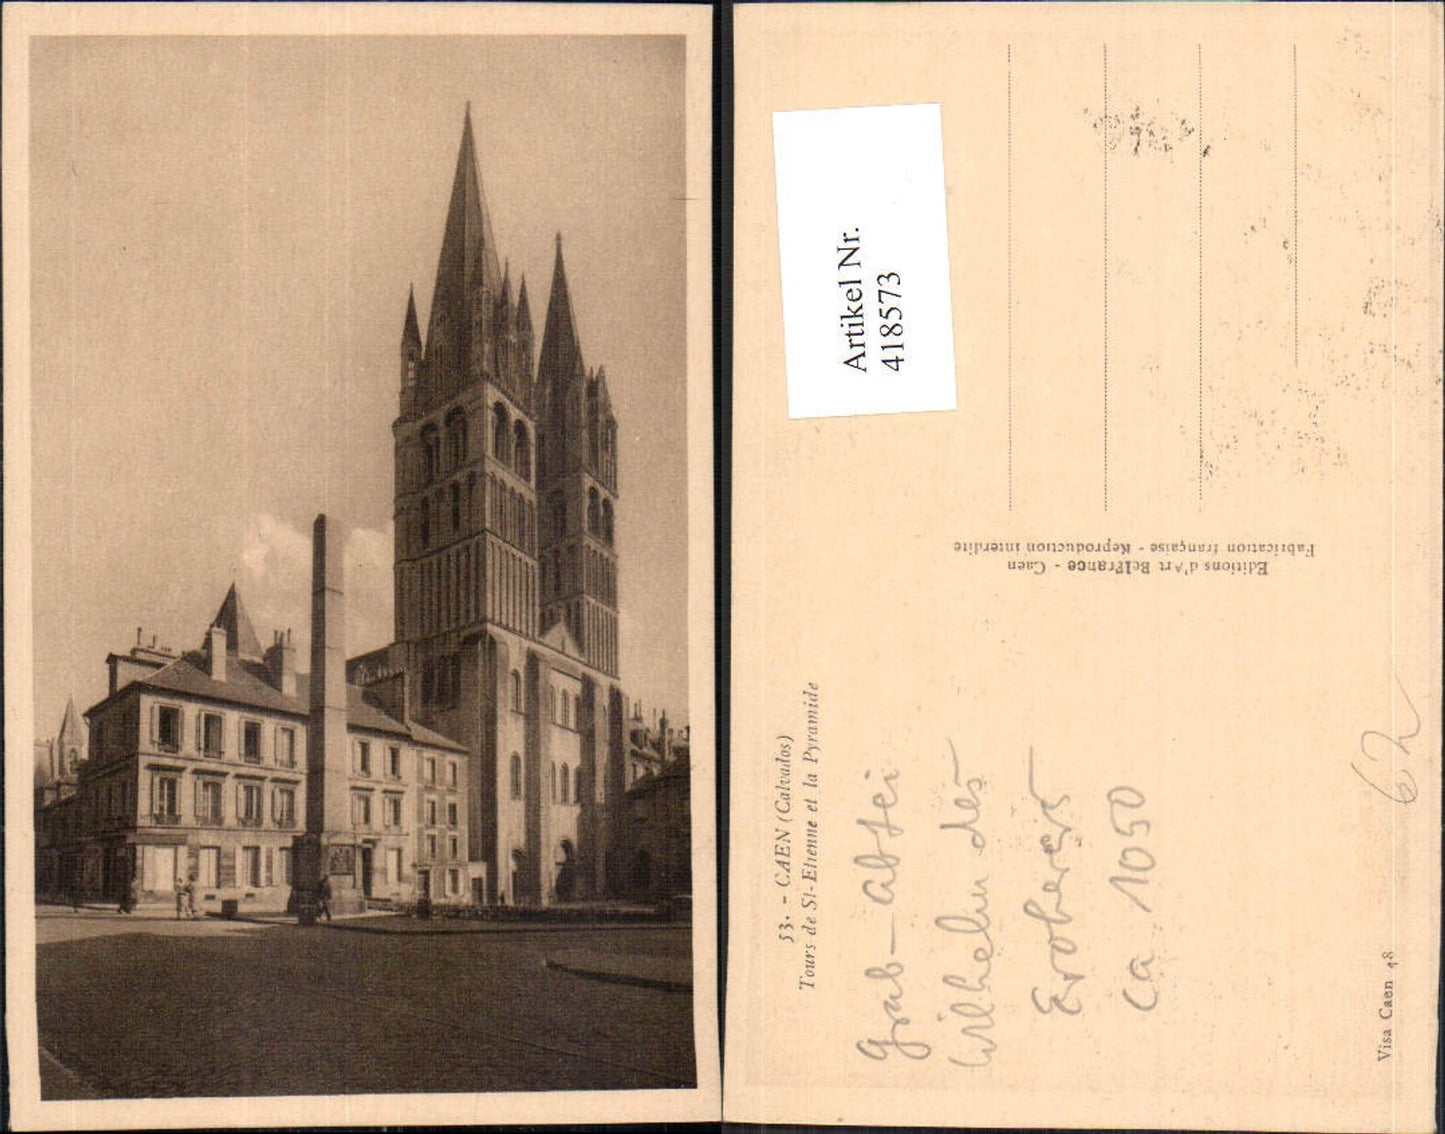 Artikel Nr.
418573
53. - CAEN (Calvados)
Tours de St-Etienne et la Pyramide
Editions d'Art BelFrance - Caen
Fabrication française - Reproduction interdite
Grab-Abtei
Wilhelm des
Eroberers
ca 1050
62
Visa Caen 48